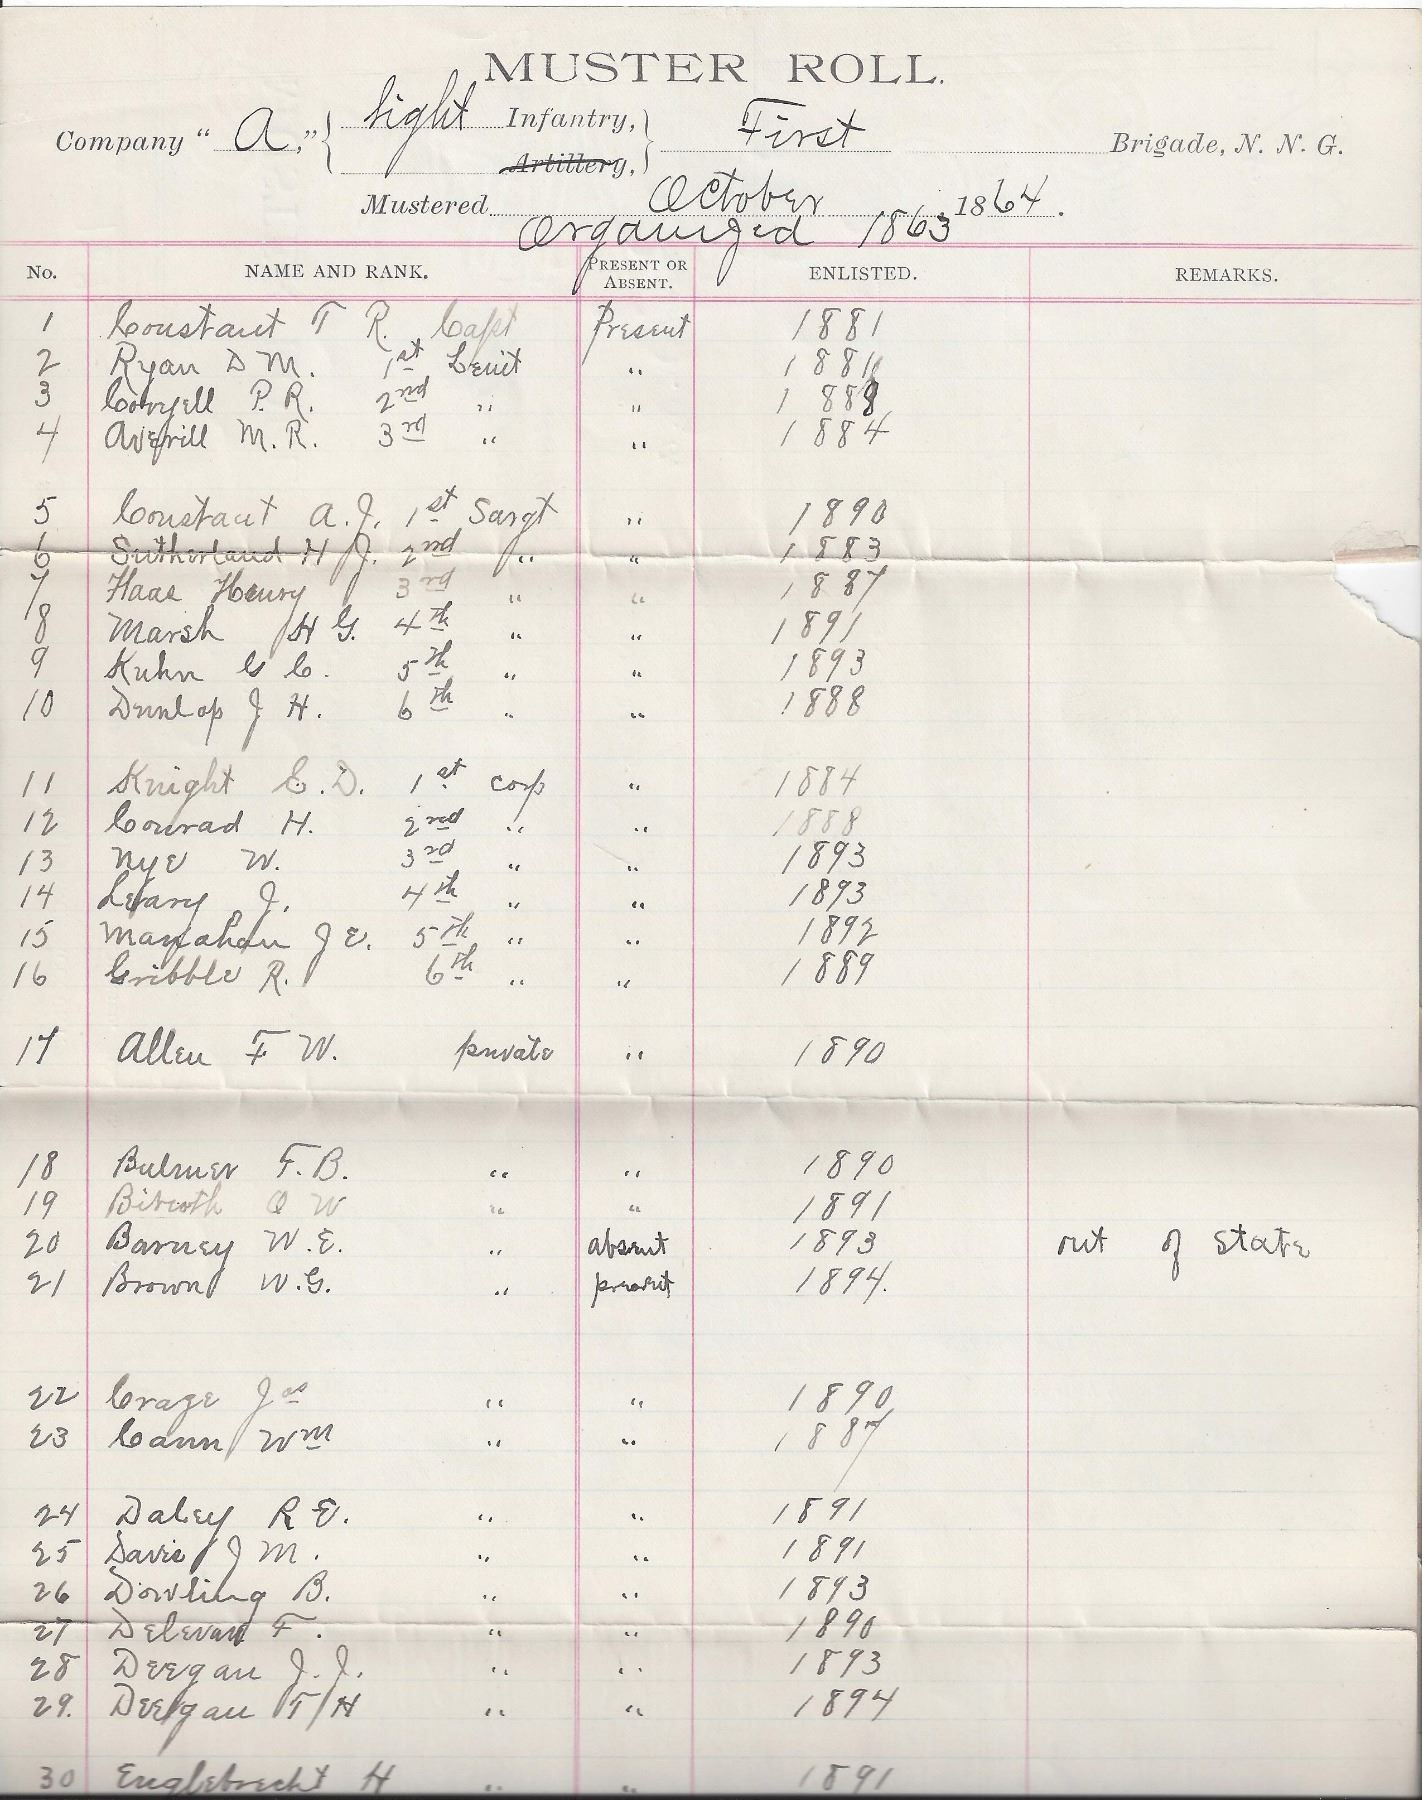 MUSTER ROLL.
Company "A," Light Infantry, First Brigade, N. N. G.
Artillery,
Mustered October 1864.
Organized 1863
No. NAME AND RANK. PRESENT OR ABSENT. ENLISTED. REMARKS.
1 Constant T R. Capt Present 1881
2 Ryan D M. 1st Leuit " 1881
3 Coryell P. R. 2nd " " 1888
4 Averill M. R. 3rd " " 1884
5 Constant A. J. 1st Sargt " 1890
6 Sutherland H J. 2nd " " 1883
7 Haas Henry 3rd " " 1887
8 Marsh H G. 4th " " 1891
9 Kuhn G C. 5th " " 1893
10 Dunlop J H. 6th " " 1888
11 Knight E. D. 1st corp " 1884
12 Conrad H. 2nd " " 1888
13 Nye W. 3rd " " 1893
14 Leary J. 4th " " 1893
15 Manahan J E. 5th " " 1892
16 Gribble R. 6th " " 1889
17 Allen F W. private " 1890
18 Bulmer F. B. " " 1890
19 O W " " 1891
20 Barney W. E. " absent 1893 out of state
21 Brown W. G. " present 1894.
22 Craze Jas " " 1890
23 Cann Wm " " 1887
24 Daley R E. " " 1891
25 Davie J M. " " 1891
26 Dowling B. " " 1893
27 Delevan F. " " 1890
28 Deegan J. J. " " 1893
29. Deegan T H " " 1894
30 Englebrecht H " " 1891